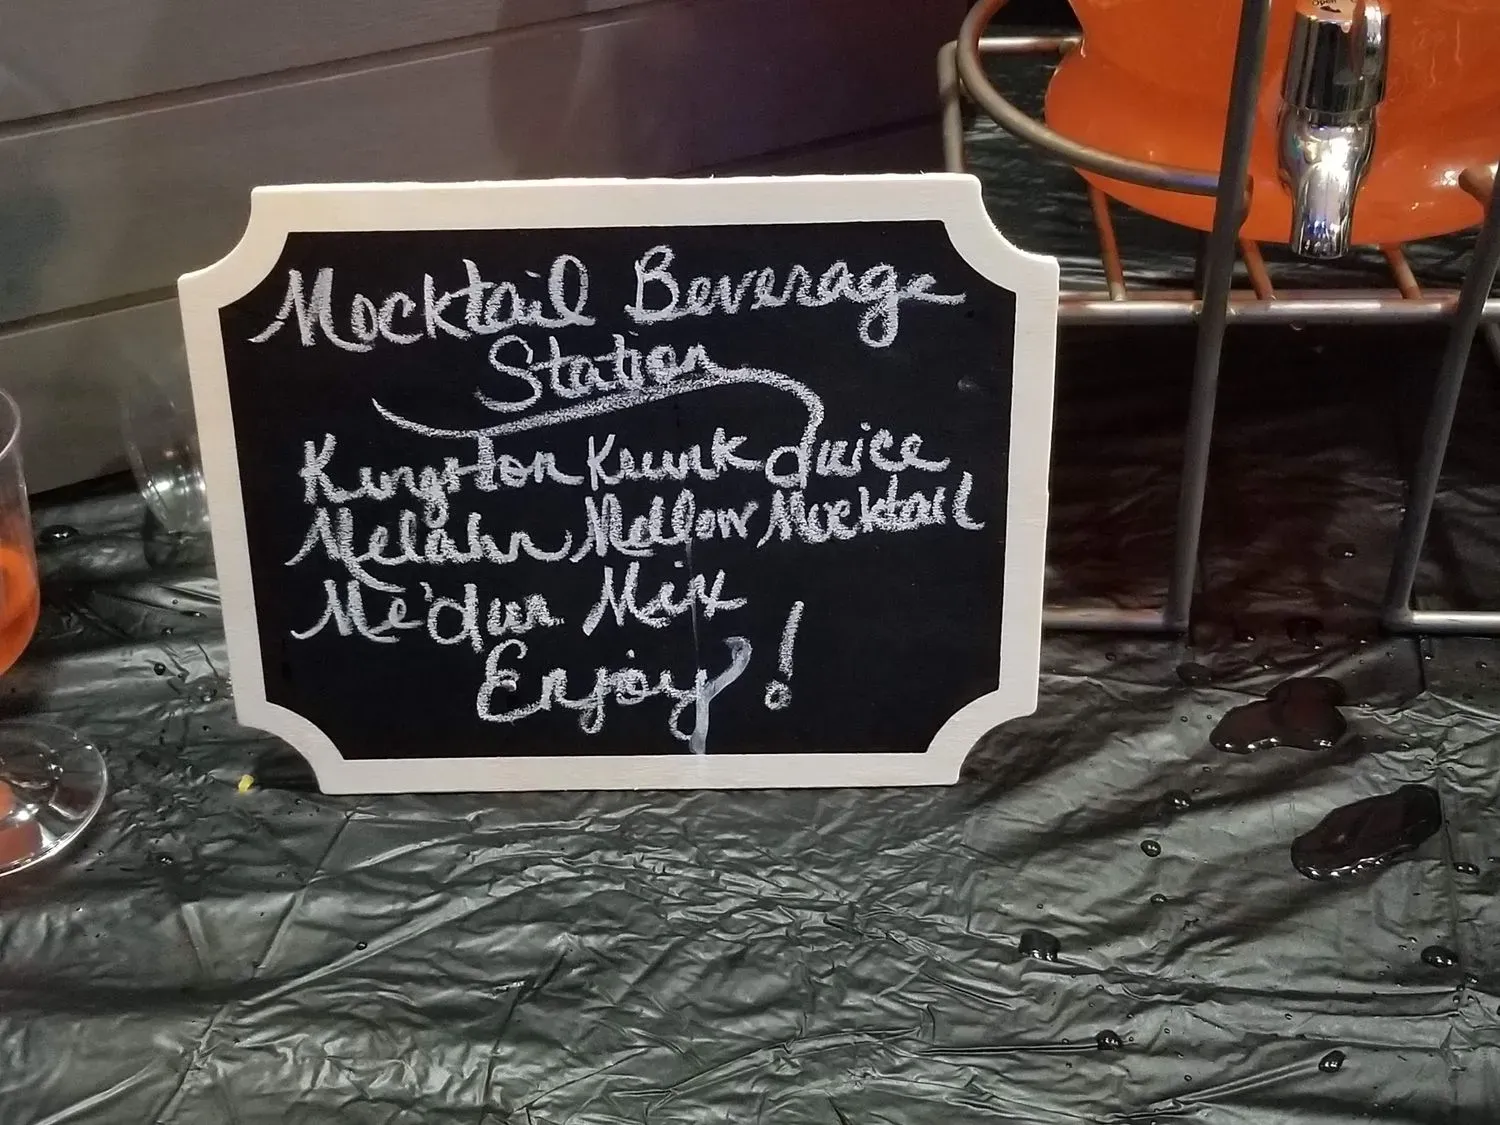 Open
Mocktail Beverage
Station
Kingston Krunk Juice
Melahn Mellow Mocktail
Me'dun Mix
Enjoy!